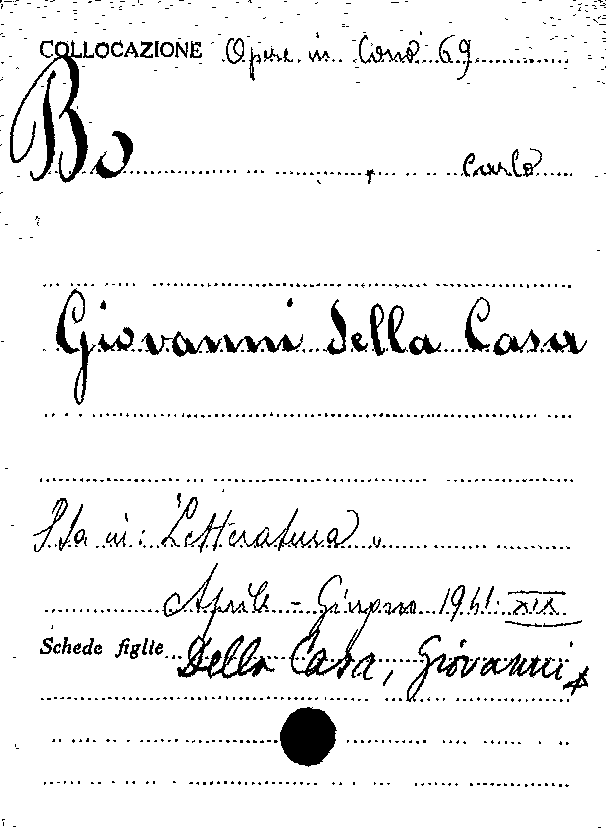 COLLOCAZIONE Opere in Cons 69
Bo, Carlo
Giovanni della Casa
Sta in: "Letteratura"
Aprile - Giugno 1941. XIX
Schede figlie Della Casa, Giovanni